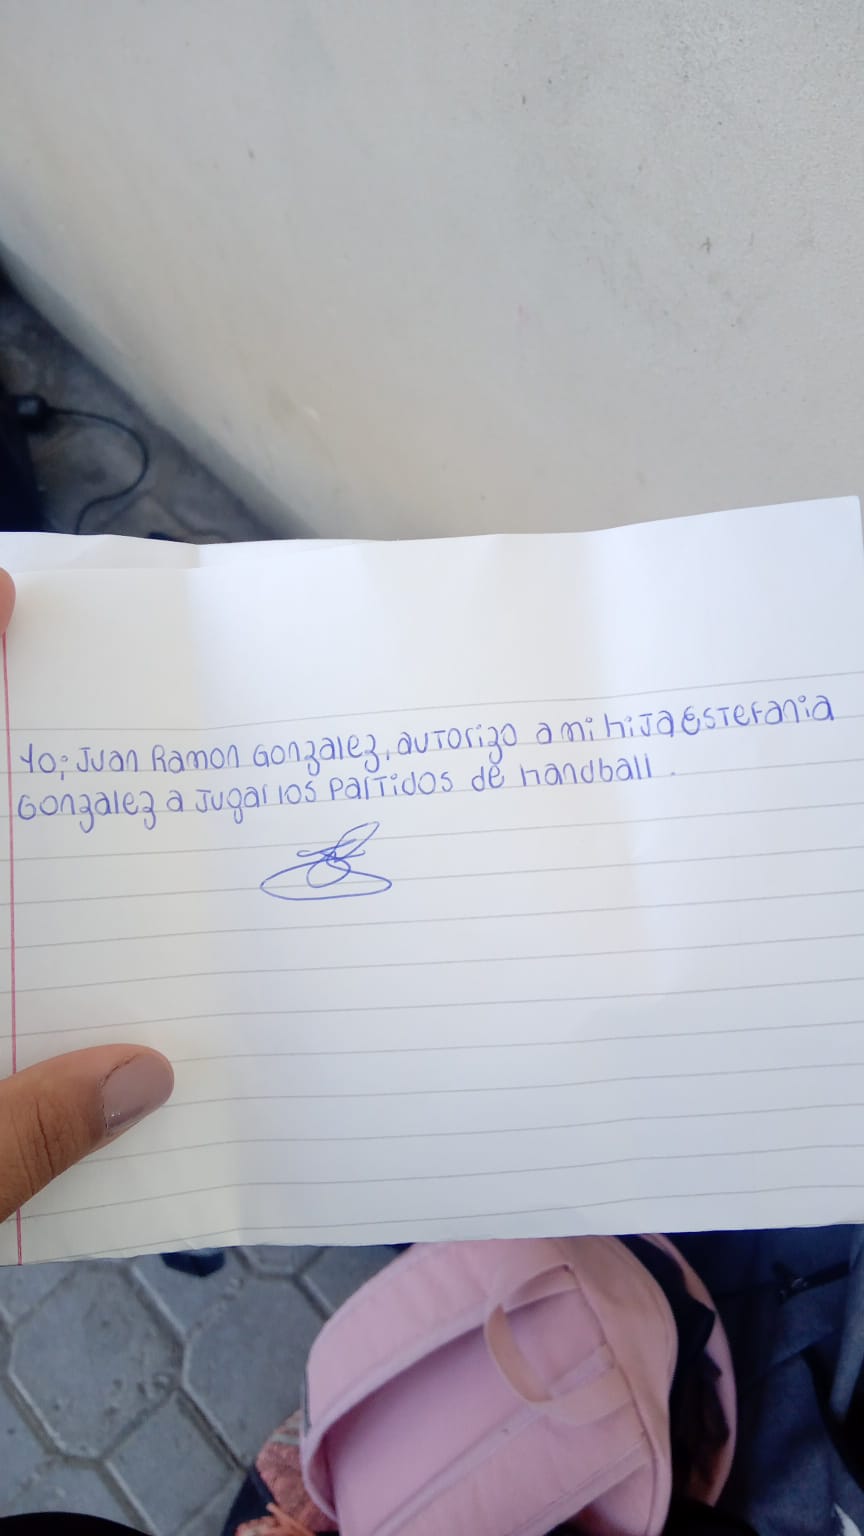 Yo; Juan Ramon Gonzalez, autorizo a mi hija Estefania
Gonzalez a Jugar los Partidos de handball.